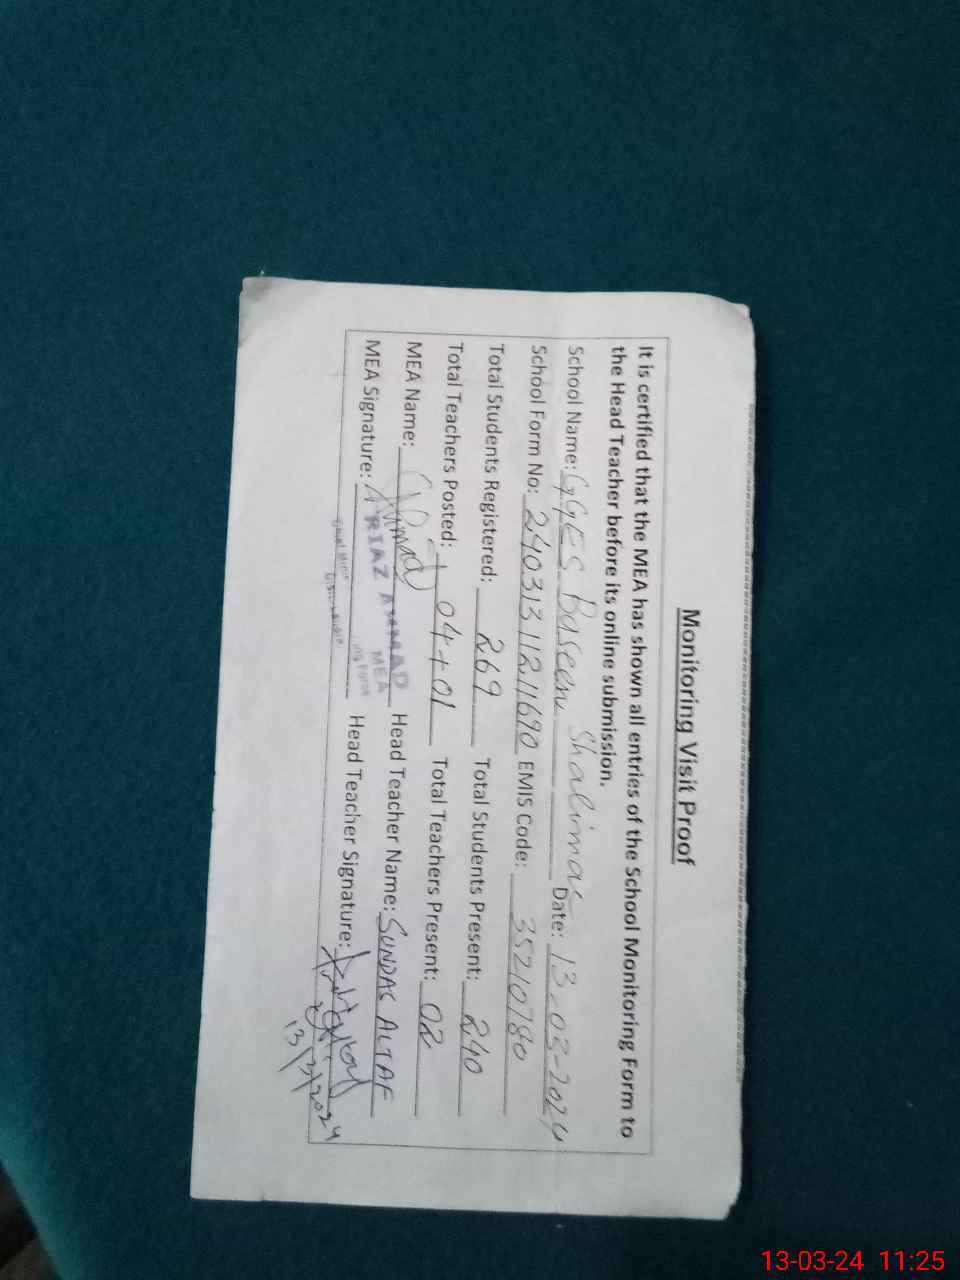 Monitoring Visit Proof
It is certified that the MEA has shown all entries of the School Monitoring Form to
the Head Teacher before its online submission.
School Name: GGES Baseen Shalimar Date: 13-03-2024
School Form No: 24031311211690 EMIS Code: 35210780
Total Students Registered: 269 Total Students Present: 240
Total Teachers Posted: 04+01 Total Teachers Present: 02
MEA Name: Head Teacher Name: SUNDAS ALTAF
RIAZ AHMAD
MEA
MEA Signature: Head Teacher Signature:
13/3/2024
13-03-24 11:25